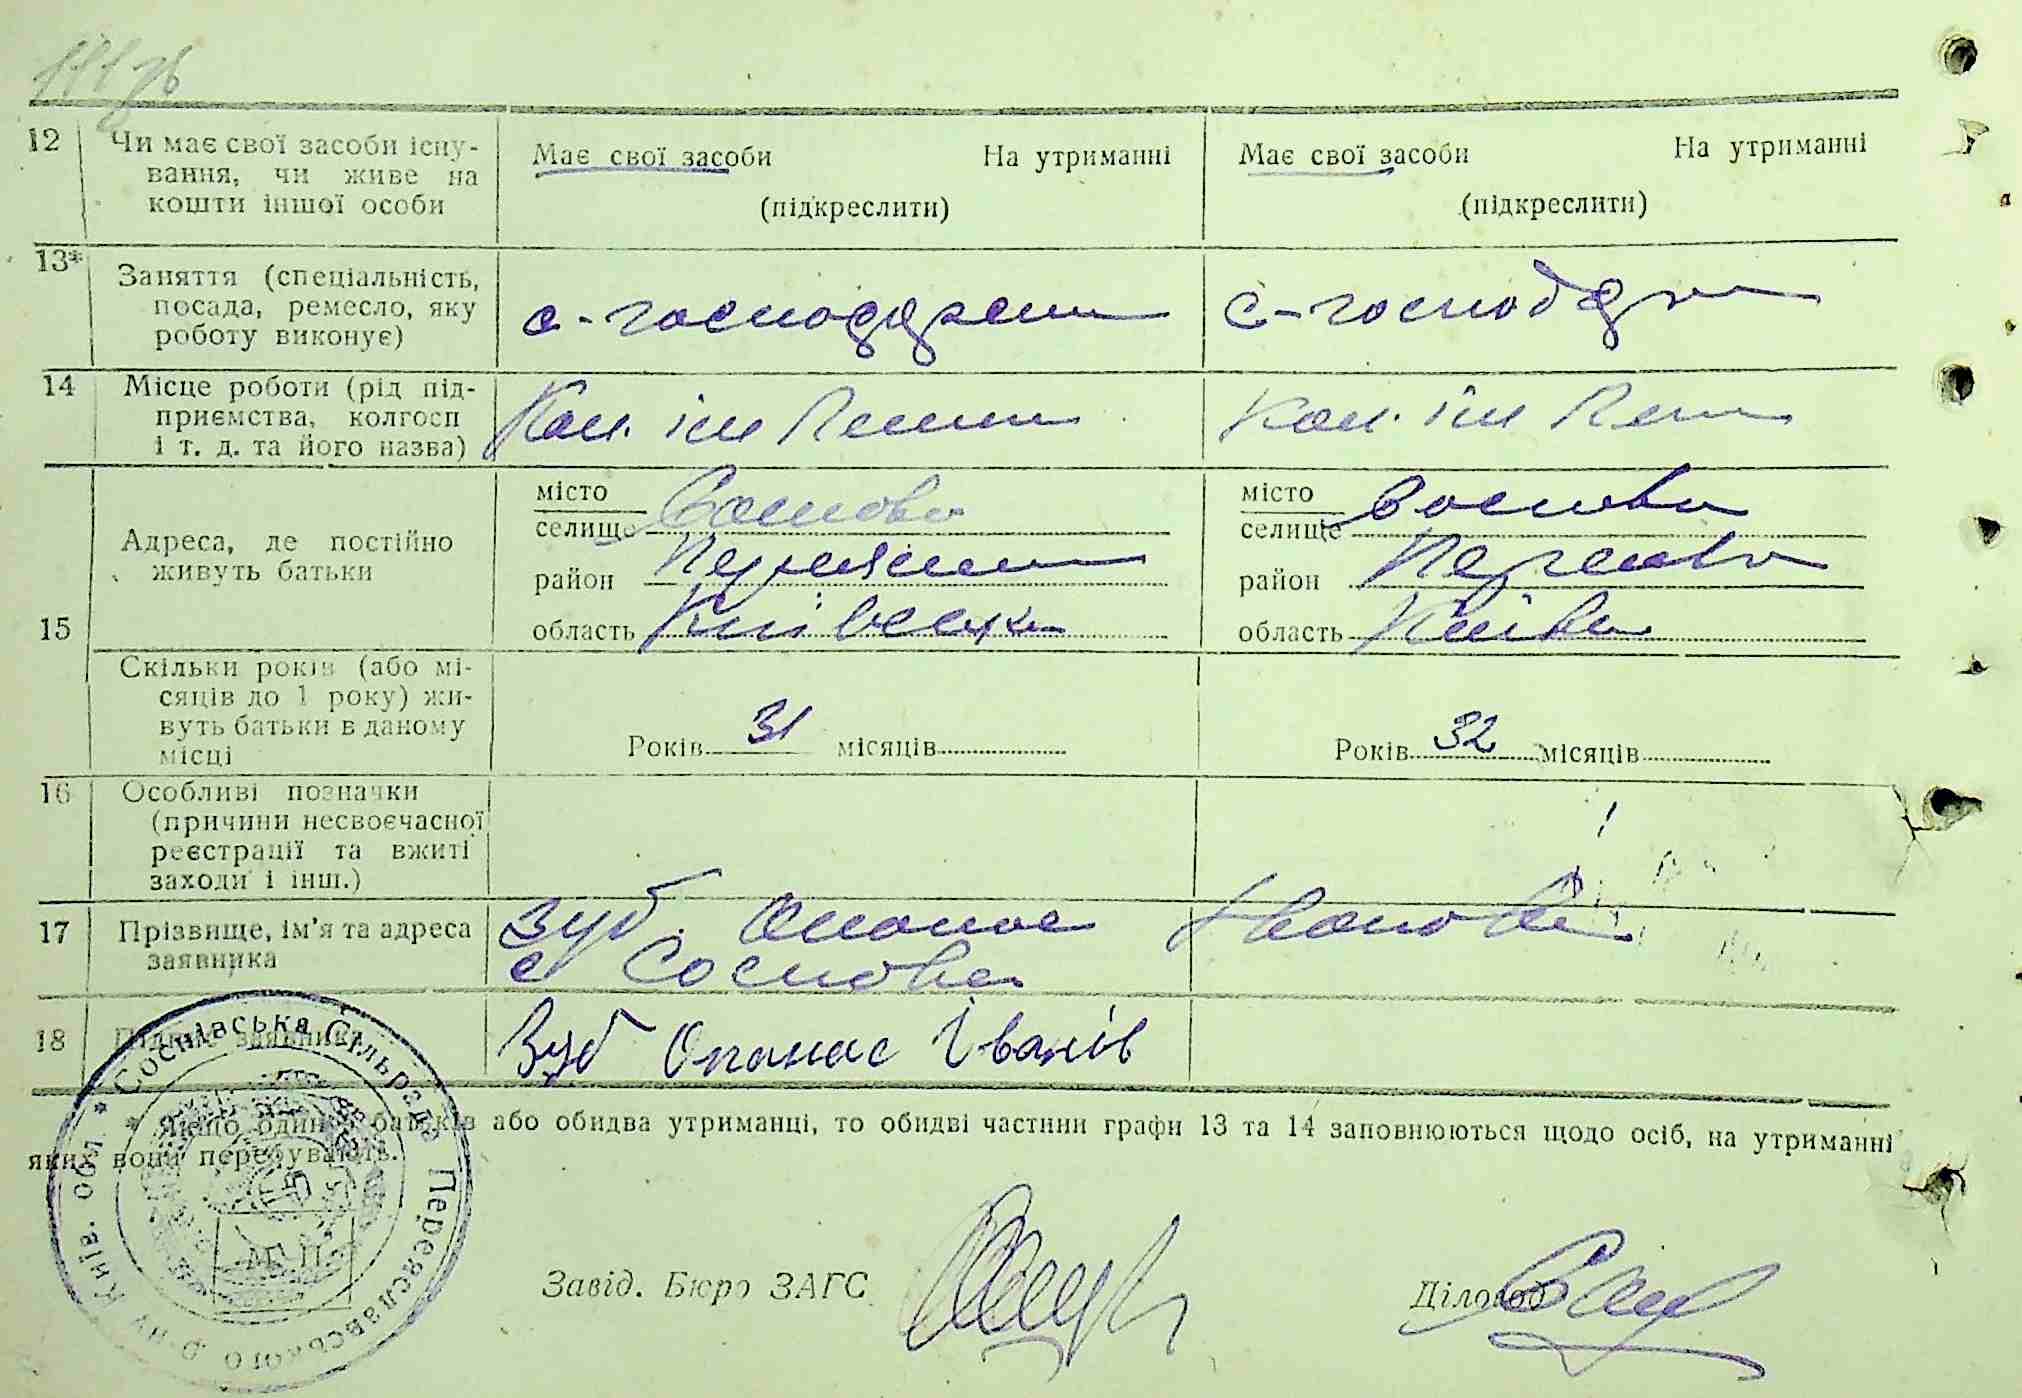 12 Чи має свої засоби існу-
вання, чи живе на
кошти іншої особи
Має свої засоби На утриманні
(підкреслити)
Має свої засоби На утриманні
(підкреслити)
13* Заняття (спеціальність,
посада, ремесло, яку
роботу виконує)
14 Місце роботи (рід під-
приємства, колгосп
і т. д. та його назва)
Кол. ім
Кол. ім
15
Адреса, де постійно
живуть батьки
місто
селище Соснова
район
область Київська
місто
селище Соснова
район
область
Скільки років (або мі-
сяців до 1 року) жи-
вуть батьки в даному
місці
Років 31 місяців
Років 32 місяців
16 Особливі позначки
(причини несвоєчасної
реєстрації та вжиті
заходи і інш.)
17 Прізвище, ім'я та адреса
заявника
Зуб Опанас
с Соснова
18 Підпис заявника
Зуб Опанас Іванів
* Якщо один з батьків або обидва утриманці, то обидві частини графи 13 та 14 заповнюються щодо осіб, на утриманні
яких вони перебувають.
* Соснівська Сільрада Переяславського р-ну Київ. обл.
Завід. Бюро ЗАГС
Діловод